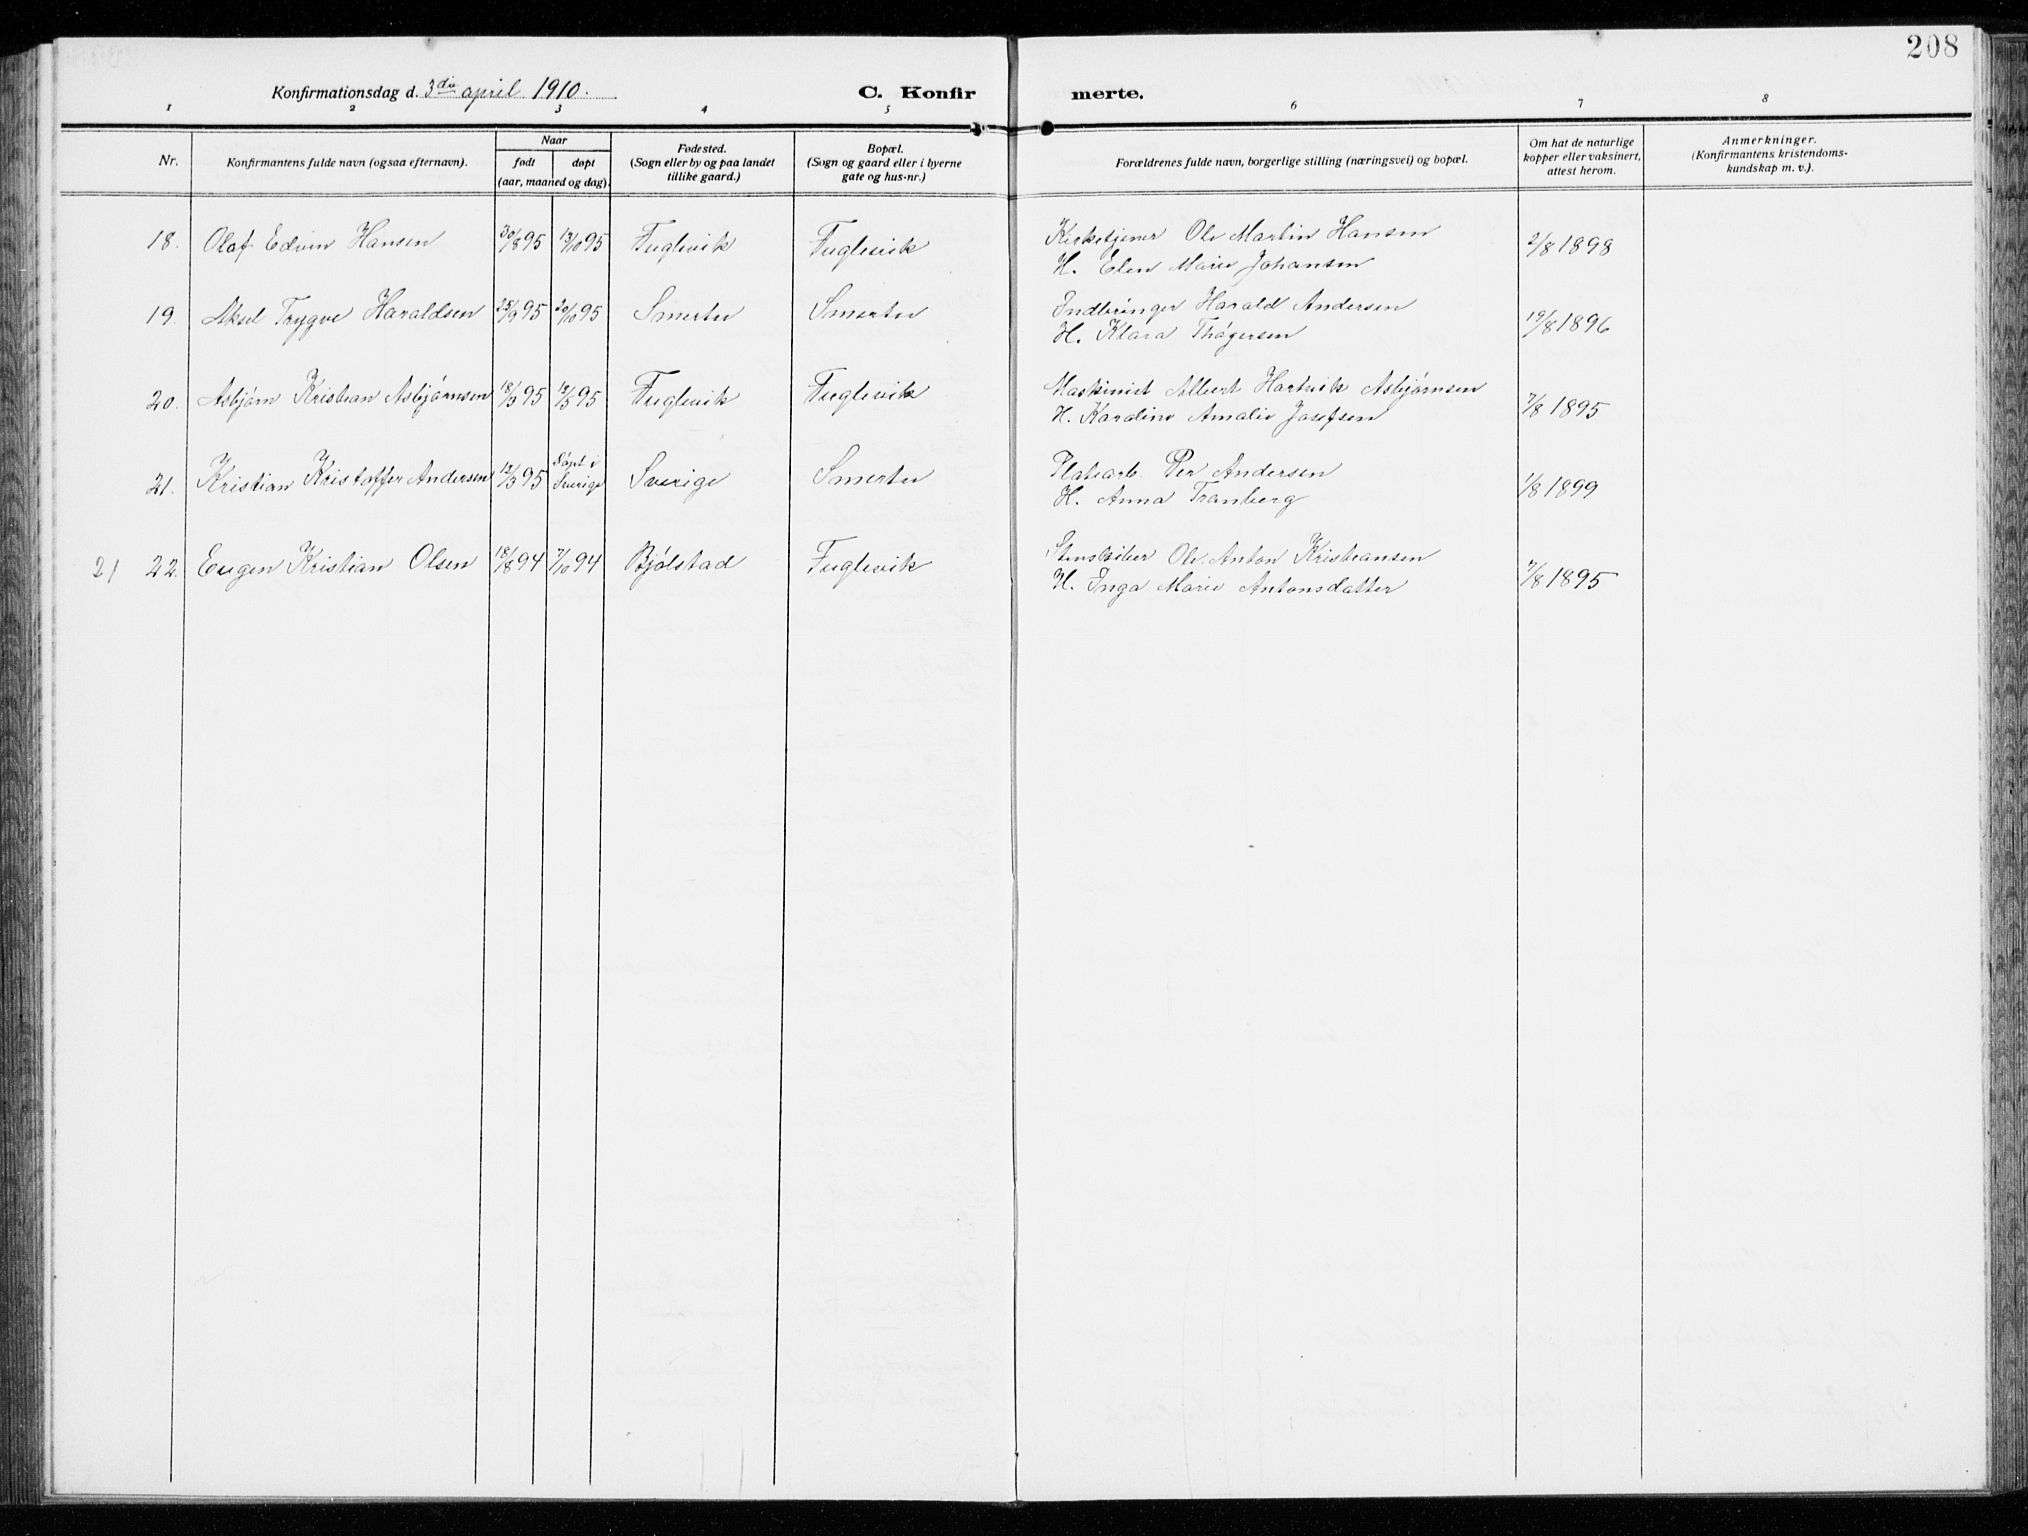 208
Konfirmationsdag d. 3die april 1910.
C. Konfir
merte.
1 2 3 4 5 6 7 8
Nr.
Konfirmantens fulde navn (ogsaa efternavn).
Naar
født døpt
(aar, maaned og dag).
Fødested.
(Sogn eller by og paa landet
tillike gaard.)
Bopæl.
(Sogn og gaard eller i byerne
gate og hus-nr.)
Forældrenes fulde navn, borgerlige stilling (næringsvei) og bopæl.
Om hat de naturlige
kopper eller vaksinert,
attest herom.
Anmerkninger.
(Konfirmantens kristendoms-
kundskap m. v.).
18. Olaf Edvin Hansen 30/8 95 13/10 95 Fuglevik Fuglevik Kirketjener Ole Martin Hansen 2/8 1898
H. Elen Marie Johansen
19. Aksel Trygve Haraldsen 25/9 95 20/10 95 Smertu Smertu Indbringer Harald Andersen 19/8 1896
H. Klara Thøgersen
20. Asbjørn Kristian Asbjørnsen 18/3 95 12/5 95 Fuglevik Fuglevik Maskinist Albert Hartvik Asbjørnsen 7/8 1895
H. Karoline Amalie Josefsen
21. Kristian Kristoffer Andersen 12/3 95 Døpt i Sverige Sverige Smertu Platearb. Per Andersen 1/8 1899
H. Anna Tranberg
21 22. Eugen Kristian Olsen 18/8 94 7/10 94 Bjølstad Fuglevik Stenskiber Ole Anton Kristiansen 7/8 1895
H. Inga Marie Antonsdatter